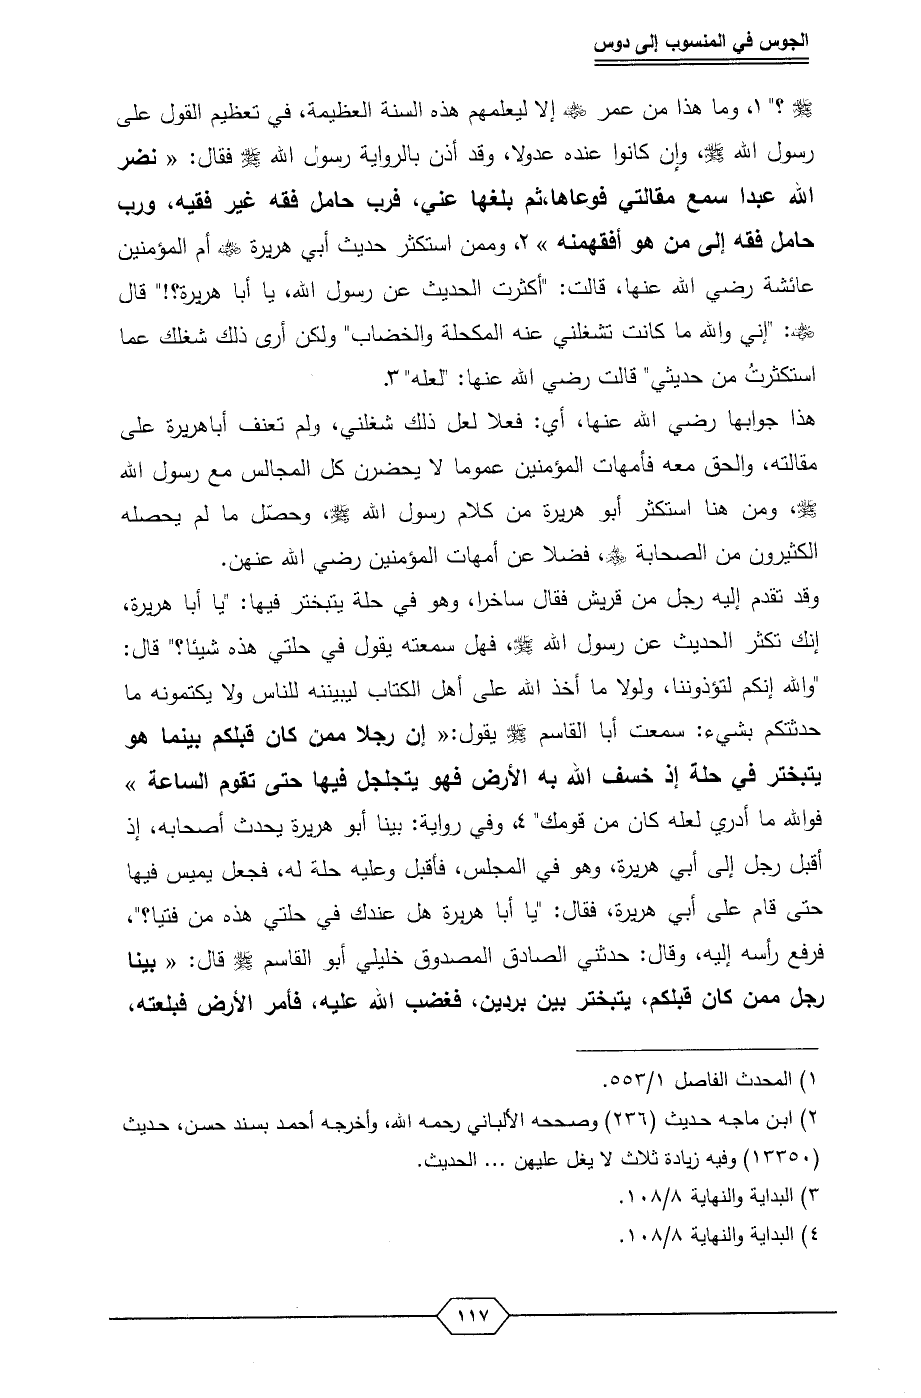 الجوس في المنسوب إلى دوس
ﷺ ؟" ١، وما هذا من عمر ﷺ إلا ليعلمهم هذه السنة العظيمة، في تعظيم القول على
رسول الله ﷺ، وإن كانوا عنده عدولا، وقد أذن بالرواية رسول الله ﷺ فقال: « نضر
الله عبدا سمع مقالتي فوعاها،ثم بلغها عني، فرب حامل فقه غير فقيه، ورب
حامل فقه إلى من هو أفقهمنه » ٢، وممن استكثر حديث أبي هريرة ﷺ أم المؤمنين
عائشة رضي الله عنها، قالت: "أكثرت الحديث عن رسول الله، يا أبا هريرة؟!" قال
ﷺ: "إني والله ما كانت تشغلني عنه المكحلة والخضاب" ولكن أرى ذلك شغلك عما
استكثرتُ من حديثي" قالت رضي الله عنها: "لعله" ٣.
هذا جوابها رضي الله عنها، أي: فعلا لعل ذلك شغلني، ولم تعنف أباهريرة على
مقالته، والحق معه فأمهات المؤمنين عموما لا يحضرن كل المجالس مع رسول الله
ﷺ، ومن هنا استكثر أبو هريرة من كلام رسول الله ﷺ، وحصّل ما لم يحصله
الكثيرون من الصحابة ﷺ، فضلا عن أمهات المؤمنين رضي الله عنهن.
وقد تقدم إليه رجل من قريش فقال ساخرا، وهو في حلة يتبختر فيها: "يا أبا هريرة،
إنك تكثر الحديث عن رسول الله ﷺ، فهل سمعته يقول في حلتي هذه شيئا؟" قال:
"والله إنكم لتؤذوننا، ولولا ما أخذ الله على أهل الكتاب ليبيننه للناس ولا يكتمونه ما
حدثتكم بشيء: سمعت أبا القاسم ﷺ يقول:« إن رجلا ممن كان قبلكم بينما هو
يتبختر في حلة إذ خسف الله به الأرض فهو يتجلجل فيها حتى تقوم الساعة »
فوالله ما أدري لعله كان من قومك" ٤، وفي رواية: بينا أبو هريرة يحدث أصحابه، إذ
أقبل رجل إلى أبي هريرة، وهو في المجلس، فأقبل وعليه حلة له، فجعل يميس فيها
حتى قام على أبي هريرة، فقال: "يا أبا هريرة هل عندك في حلتي هذه من فتيا؟"،
فرفع رأسه إليه، وقال: حدثني الصادق المصدوق خليلي أبو القاسم ﷺ قال: « بينا
رجل ممن كان قبلكم، يتبختر بين بردين، فغضب الله عليه، فأمر الأرض فبلعته،
١) المحدث الفاصل ٥٥٣/١.
٢) ابن ماجه حديث (٢٣٦) وصححه الألباني رحمه الله، وأخرجه أحمد بسند حسن، حديث
(١٣٣٥٠) وفيه زيادة ثلاث لا يغل عليهن ... الحديث.
٣) البداية والنهاية ١٠٨/٨.
٤) البداية والنهاية ١٠٨/٨.
١١٧